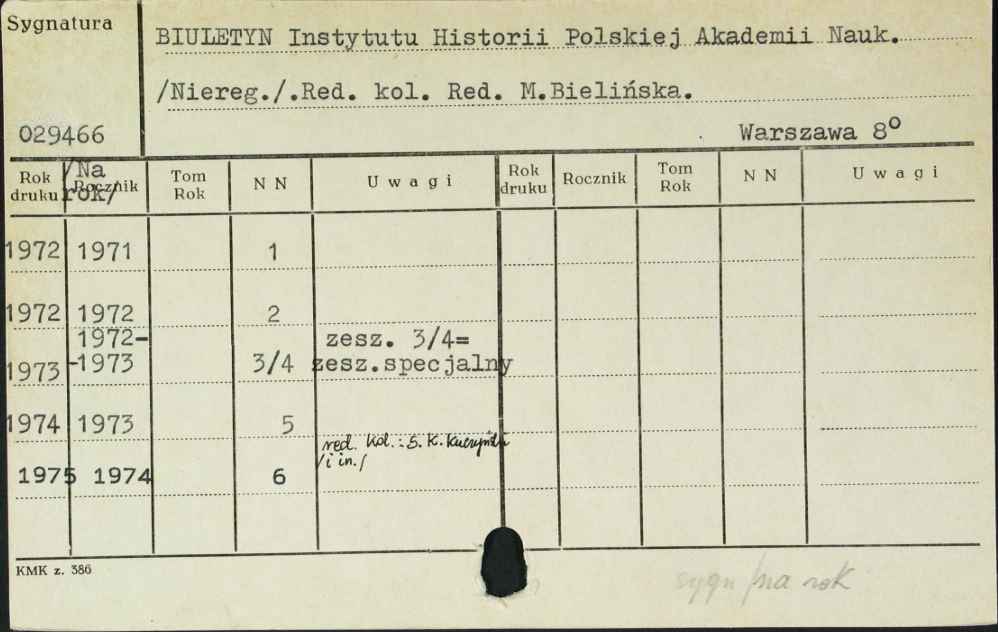 Sygnatura
BIULETYN Instytutu Historii Polskiej Akademii Nauk.
/Niereg./.Red. kol. Red. M.Bielińska.
029466
Warszawa 8°
Rok druku /Na Rocznik rok/ Tom Rok N N Uwagi Rok druku Rocznik Tom Rok N N Uwagi
1972 1971 1
1972 1972 2
1973 1972--1973 3/4 zesz. 3/4= zesz.specjalny
1974 1973 5
red. kol.: S. K. Kuczyński
/i in./
1975 1974 6
KMK z. 386
sygn /na rok